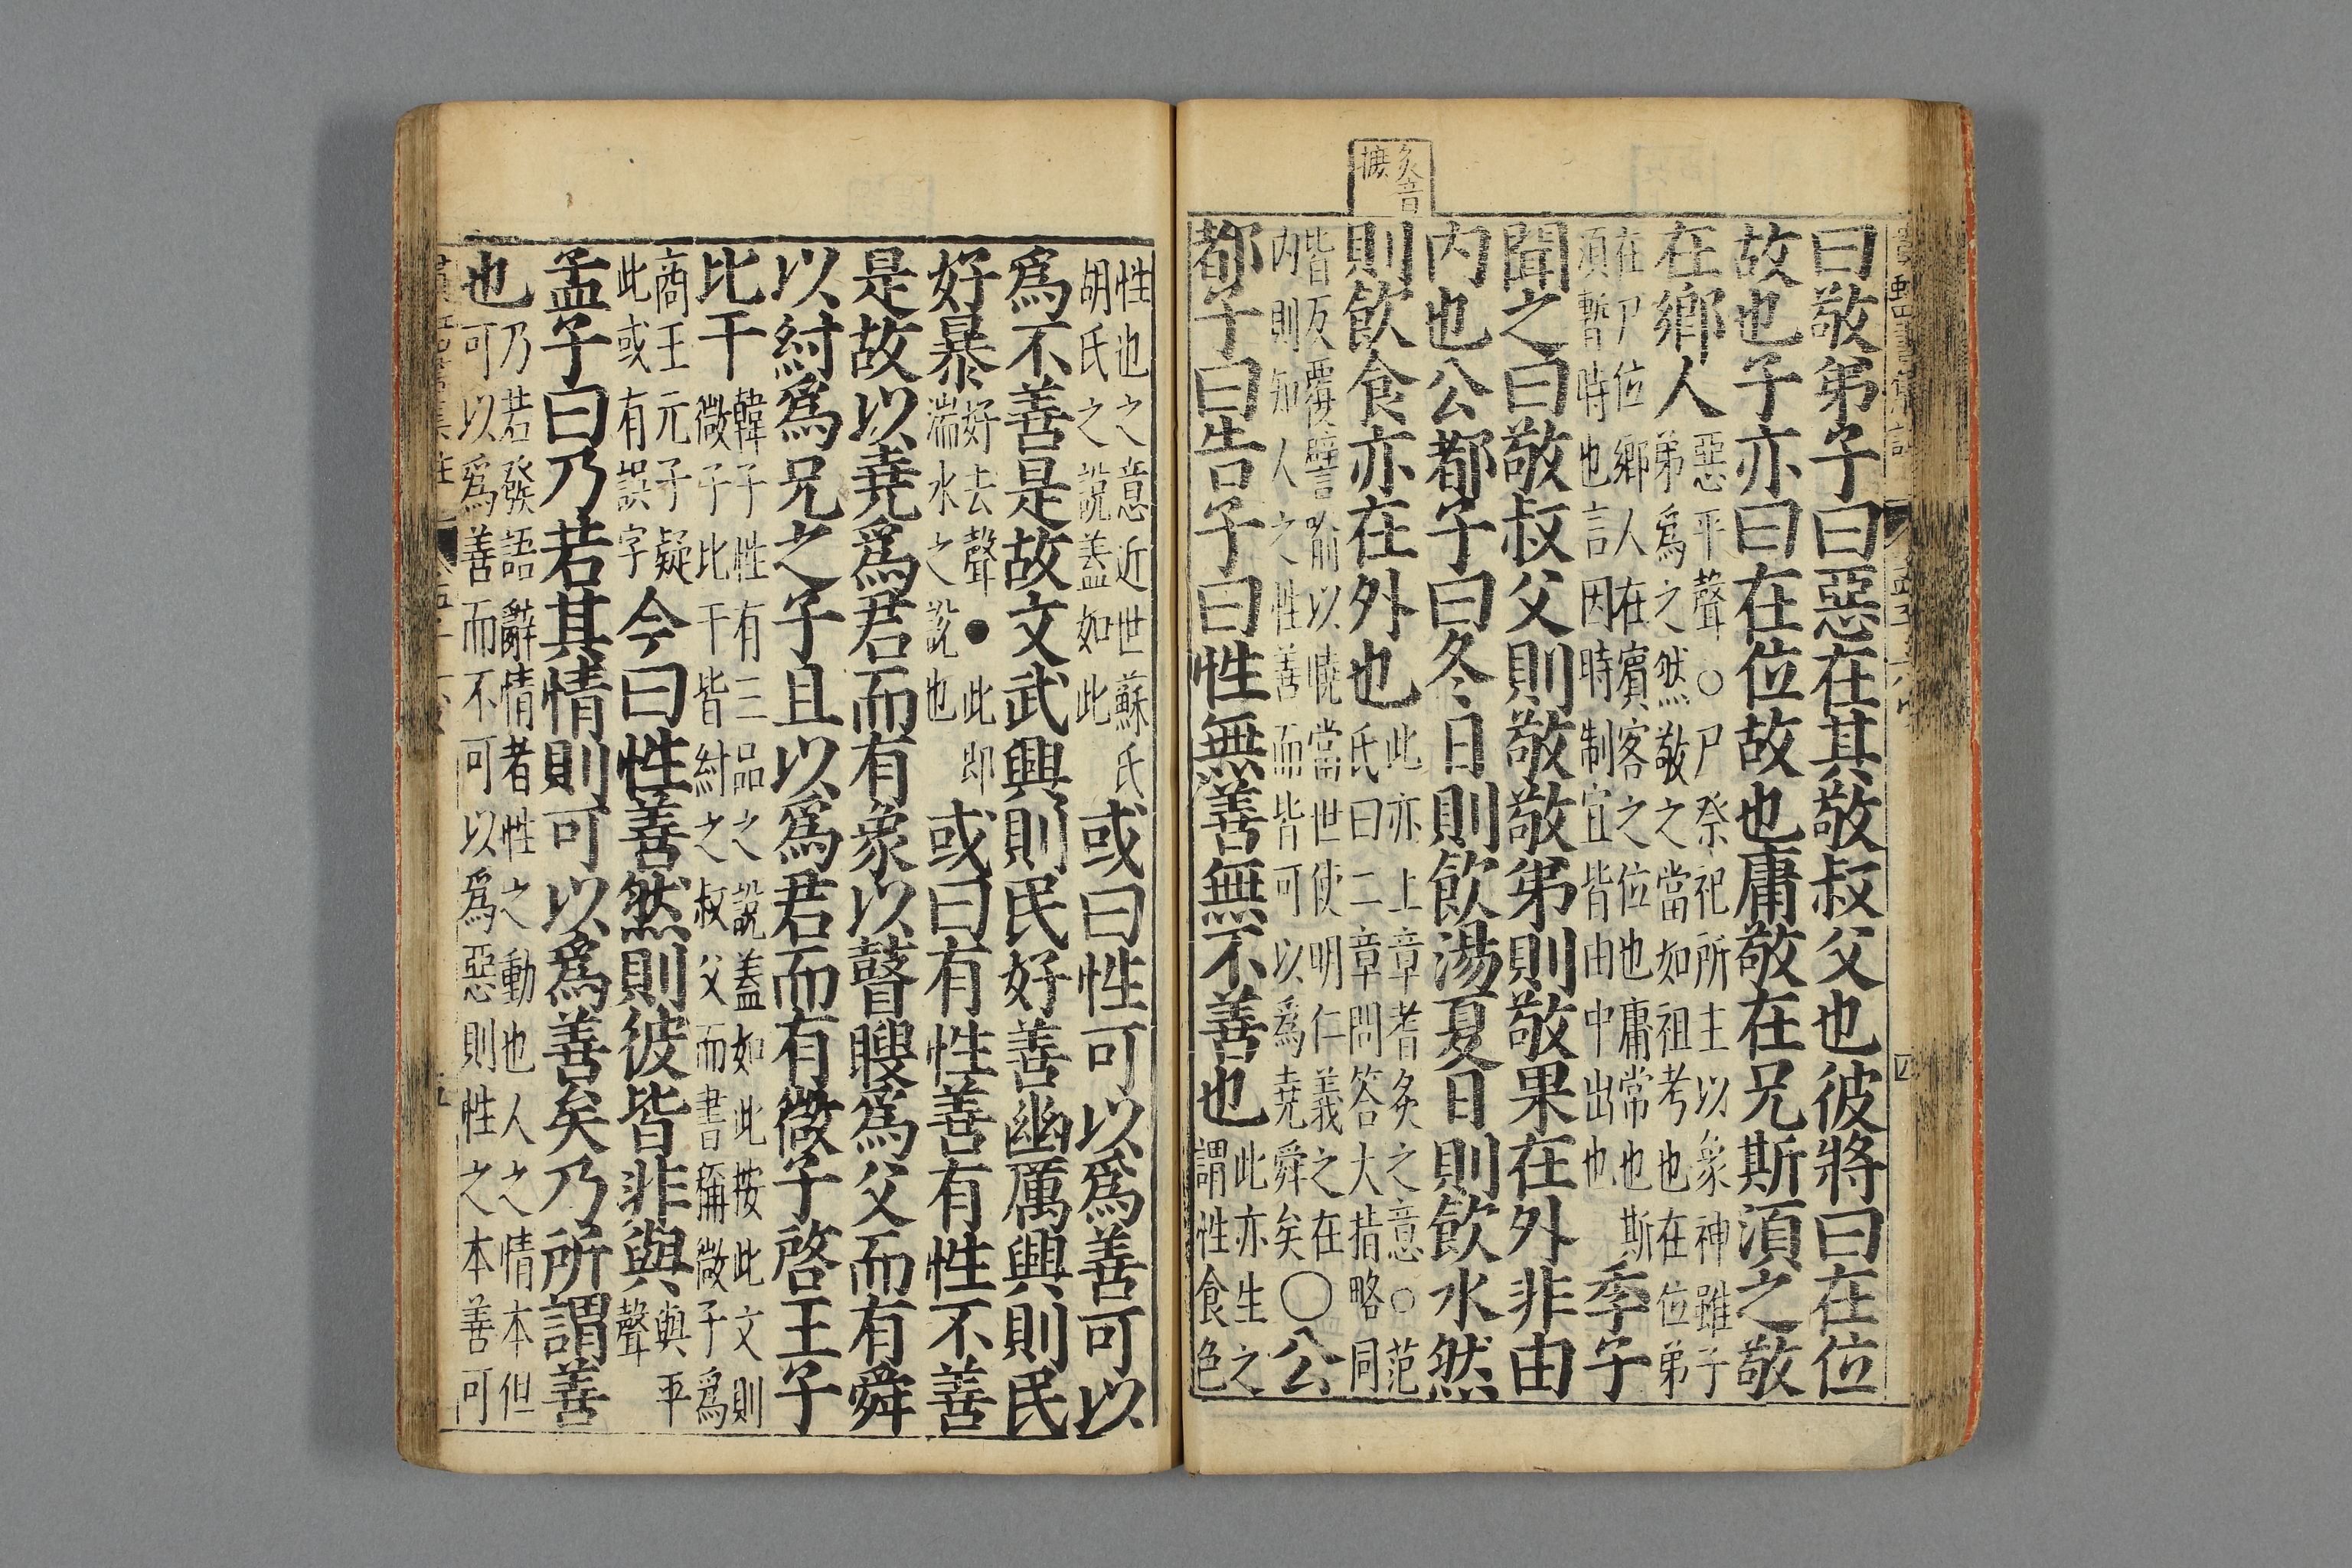 曰敬弟子曰惡在其敬叔父也彼將曰在位
故也子亦曰在位故也庸敬在兄斯湏之敬
在鄉人
惡平聲○尸祭祀所主以象神雖子
弟為之然敬之當如祖考也在位弟
在尸位鄉人在賓客之位也庸常也斯
湏暫時也言因時制宜皆由中出也
季子
聞之曰敬叔父則敬敬弟則敬果在外非由
内也公都子曰冬日則飲湯夏日則飲水然
則飲食亦在外也
此亦上章耆炙之意○范
氏曰二章問答大指略同
皆反覆譬喻以曉當世使明仁義之在
内則知人之性善而皆可以為堯舜矣
○公
都子曰告子曰性無善無不善也
此亦生之
謂性食色
炙音
摭
四
性也之意近世蘇氏
胡氏之說蓋如此
或曰性可以爲善可以
爲不善是故文武興則民好善幽厲興則民
好暴
好去聲●此即
湍水之說也
或曰有性善有性不善
是故以堯爲君而有象以瞽瞍爲父而有舜
以紂爲兄之子且以爲君而有微子啓王子
比干
韓子性有三品之說蓋如此按此文則
微子比干皆紂之叔父而書稱微子爲
商王元子疑
此或有誤字
今曰性善然則彼皆非與
與平
聲
孟子曰乃若其情則可以爲善矣乃所謂善
也
乃若發語辭情者性之動也人之情本但
可以爲善而不可以爲惡則性之本善可